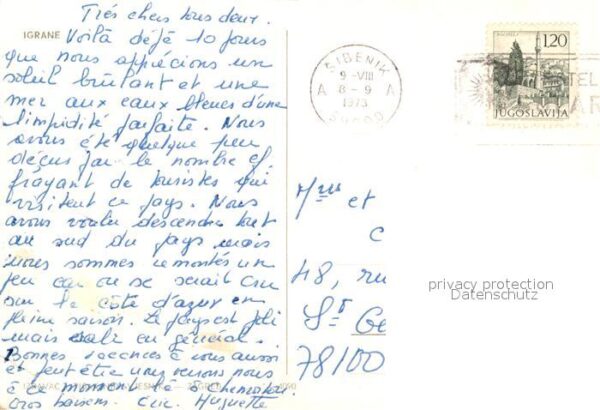 Très chers tous deux.
IGRANE
Voilà déjà 10 jours
que nous apprécions un
soleil brûlant et une
mer aux eaux bleues d'une
limpidité parfaite. Nous
avons été quelque peu
déçus par le nombre ef
frayant de touristes qui
visitent ce pays. Nous
avons voulu descendre tout
au sud du pays mais
nous sommes remontés un
peu car on se serait cru
sur la côte d'azur en
pleine saison. Le pays est joli
mais sale en général.
Bonnes vacances à vous aussi
et peut être
à ce moment là
Gros baisers. Eric. Huguette
ŠIBENIK
9-VIII
8-9
1973
A A
1,20
JUGOSLAVIJA
Mme et
48, ru
St Ge
78100
privacy protection
Datenschutz